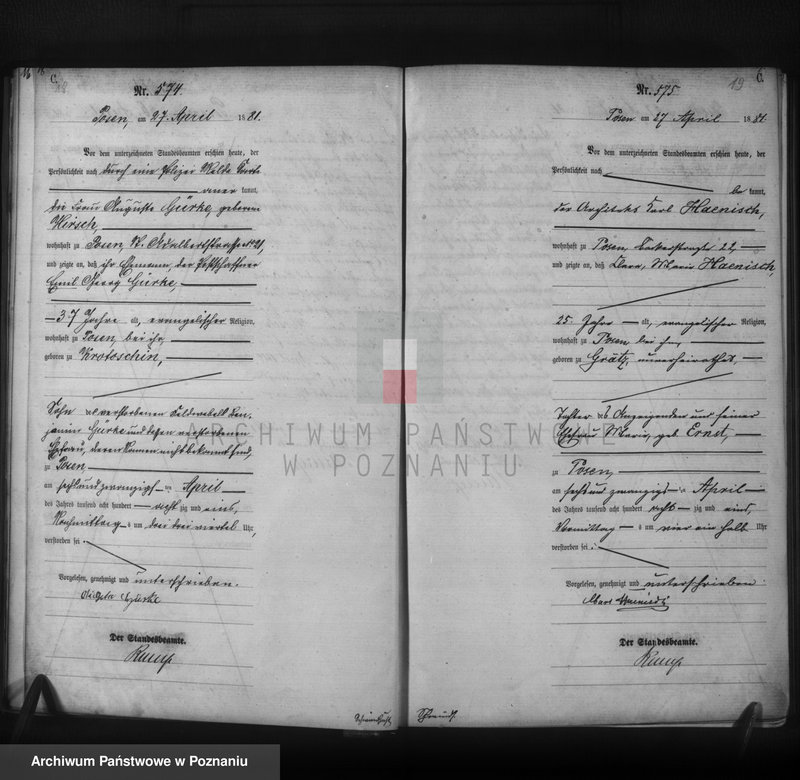 C.
Nr. 574
Posen, am 27 April 1881.
Vor dem unterzeichneten Standesbeamten erschien heute, der
Persönlichkeit nach durch eine Polizei
aner kannt,
die Frau Auguste Gürke, geborene
Hirsch,
wohnhaft zu Posen, St. Adalbertstraße 21,
und zeigte an, daß ihr Ehemann, der Postschaffner
Emil Georg Gürke,
37 Jahre alt, evangelischer Religion,
wohnhaft zu Posen, bei ihr,
geboren zu Krotoschin,
Sohn des verstorbenen Feldwebels Ben-
jamin Gürke und dessen verstorbenen
Ehefrau, deren Namen nicht bekannt sind,
zu Posen
am sechsundzwanzigsten April
des Jahres tausend acht hundert achtzig und eins,
Nachmittag um drei drei viertel Uhr,
verstorben sei.
Vorgelesen, genehmigt und unterschrieben.
Gürke
Der Standesbeamte.
Rump
19 C.
Nr. 575
Posen am 27 April 1881
Vor dem unterzeichneten Standesbeamten erschien heute, der
Persönlichkeit nach
be kannt,
der Architekt Carl Haenisch,
wohnhaft zu Posen, Bäckerstraße 22
und zeigte an, daß Clara, Marie Haenisch,
25 Jahre alt, evangelischer Religion,
wohnhaft zu Posen bei ihm,
geboren zu Grätz, unverheirathet,
Tochter des Anzeigenden und seiner
Ehefrau Marie, geb. Ernst,
zu Posen,
am sechsundzwanzigsten April
des Jahres tausend acht hundert achtzig und eins,
Vormittag um vier ein halb Uhr
verstorben sei.
Vorgelesen, genehmigt und unterschrieben
Haenisch
Der Standesbeamte.
Rump
ARCHIWUM PAŃSTWOWE
W POZNANIU
Archiwum Państwowe w Poznaniu